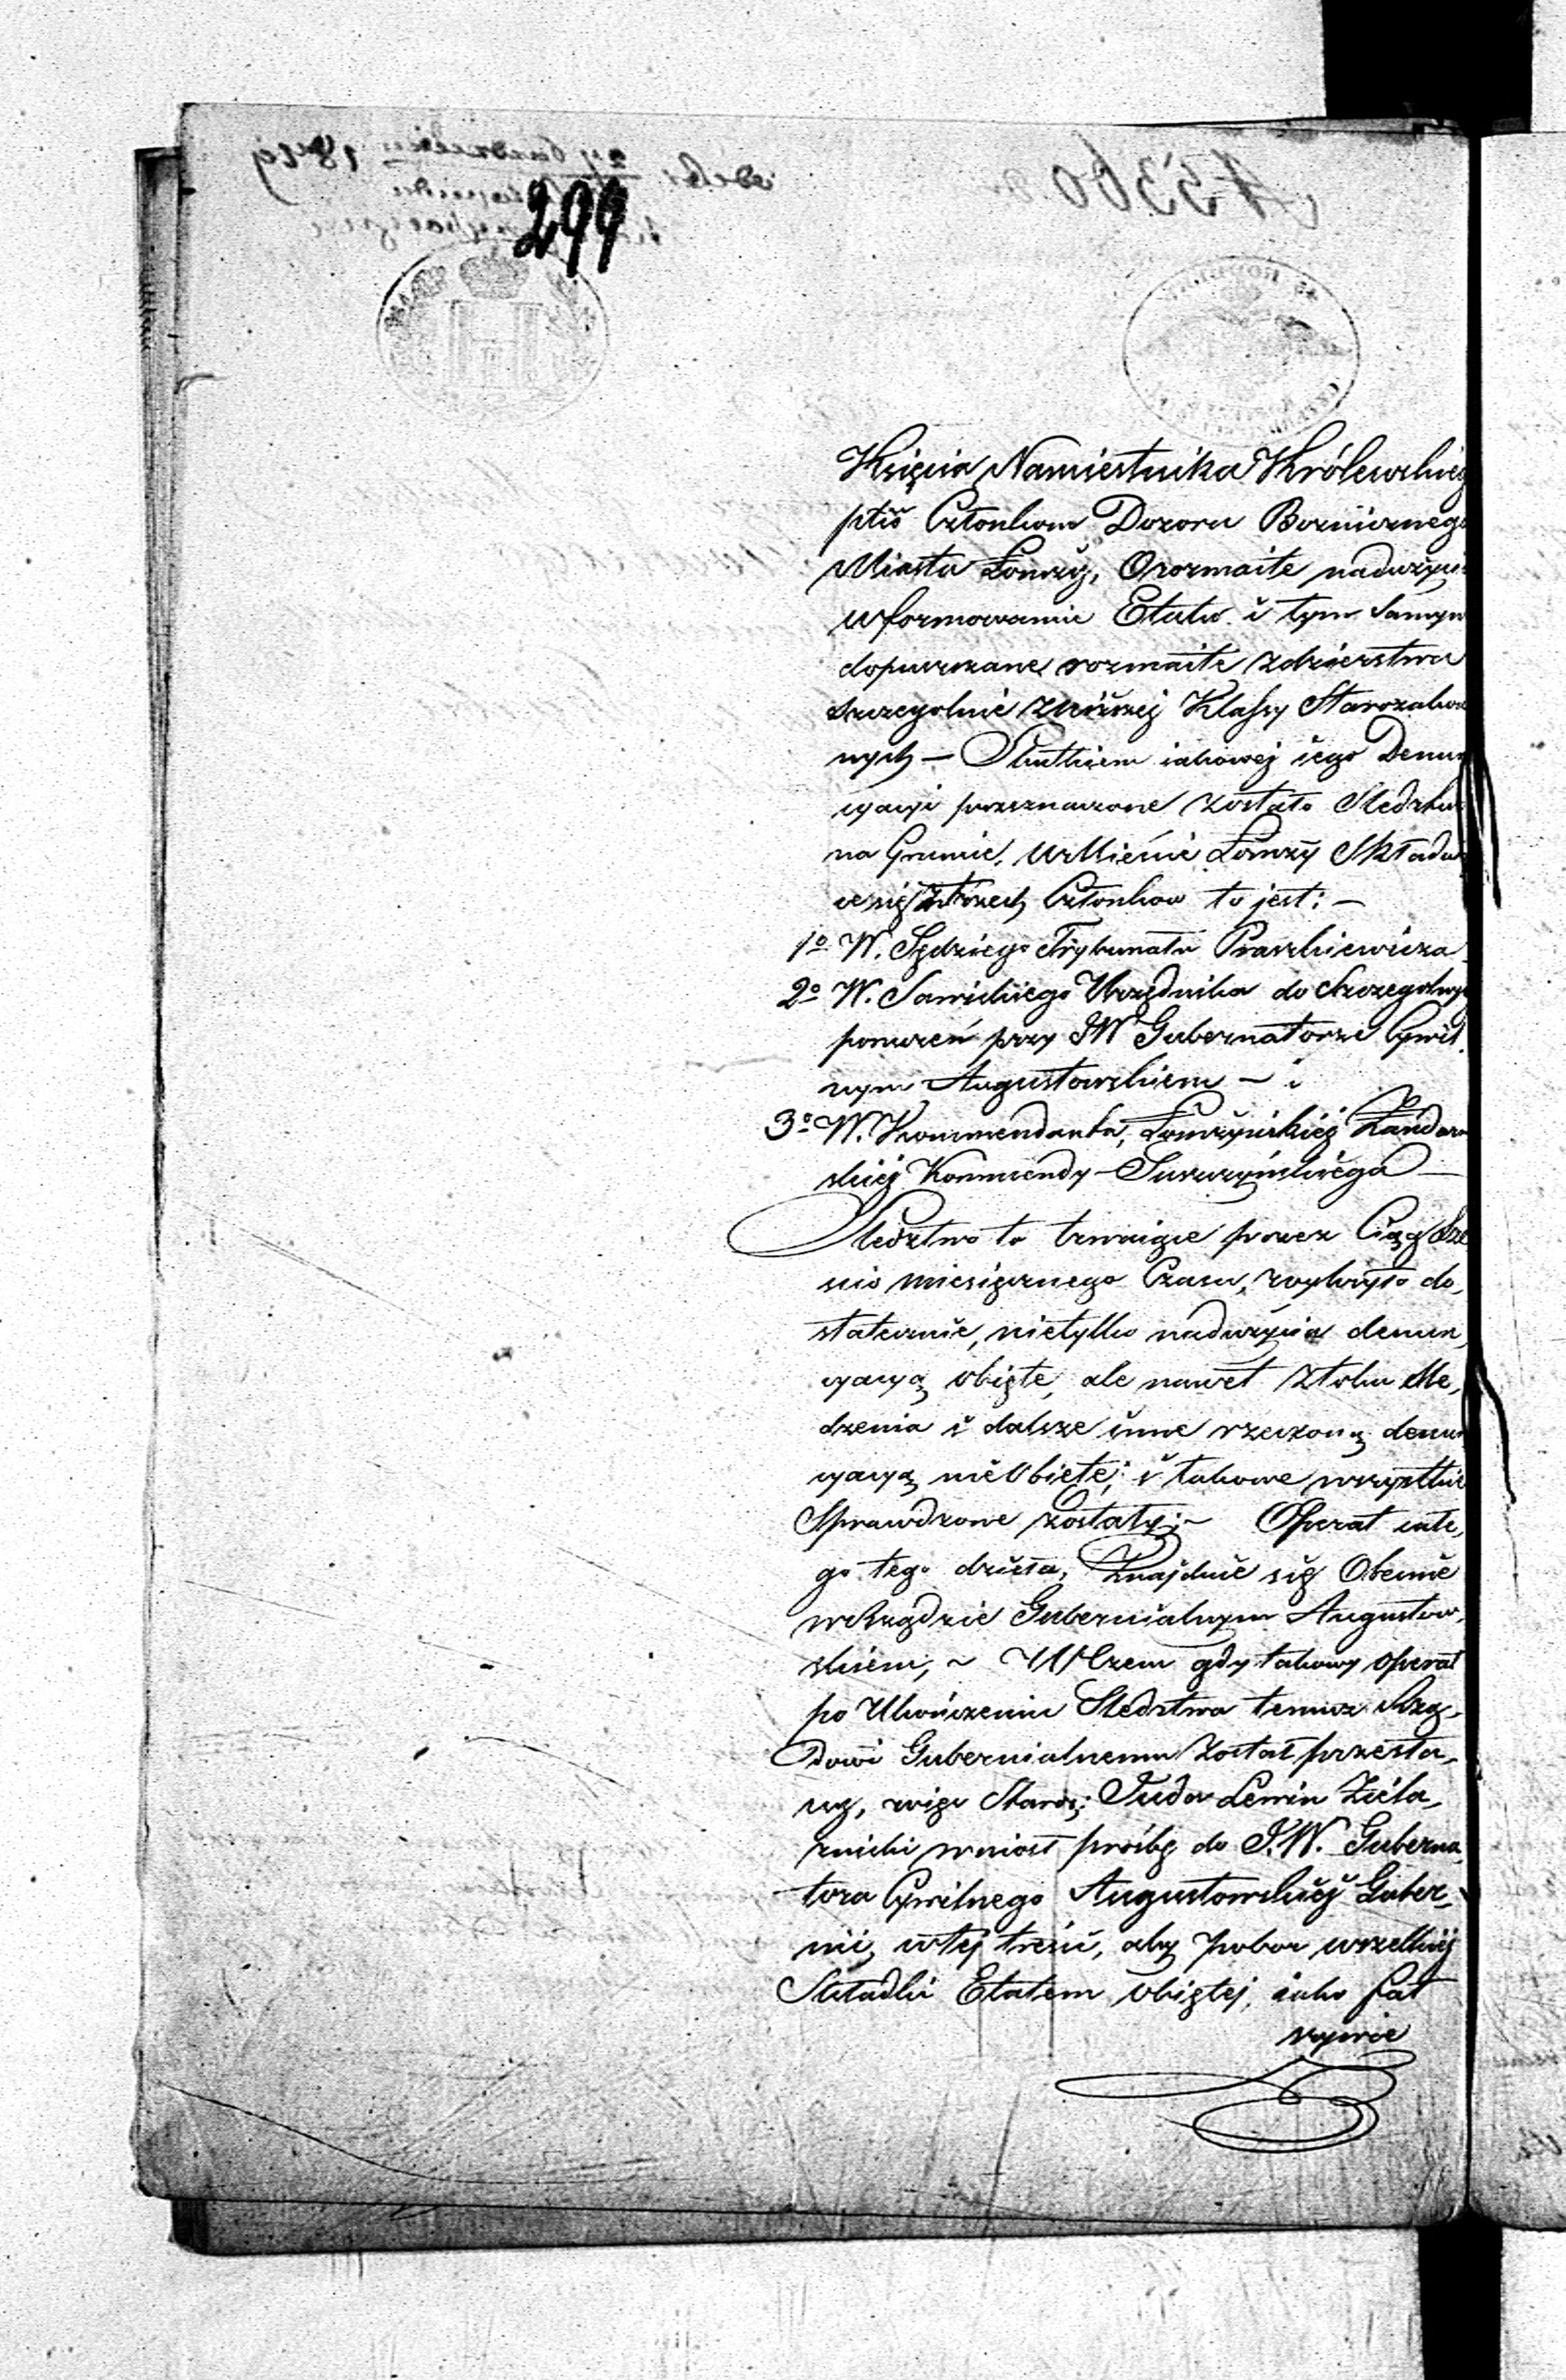 299
Księcia Namiestnika Królewskieg
ptko Członkom Dozoru Bozniczneg
Miasta Łomży, O rozmaite naduzyci
w formowanie Etatu i tym samym
dopuszczane rozmaite zdzierstwa
szczegolnie z niższej Klassy Starozakon
nych — Skutkiem iakowej iego Denun
cyacyi przeznaczone zostało Sledztwo
na Gruncie, w Mieście Łomży Składa
ce się z trzech Członkow to jest: —
1o W. Sędziego Trybunału Praszkiewicza
2o W. Sawickiego Urzędnika do szczegolnyc
poruczeń przy JW Gubernatorze Cywil
nym Augustowskiem — i
3o W. Kommendanta, Łomżyńskiej Żandar
skiej Kommendy — Suszczyńskiego —
Sledztwo to trwaiące przez Ciąg sze
scio miesięcznego Czasu, wykryło do,
statecznie, nietylko naduzycia denun,
cyacyą obięte, ale nawet z toku Sle,
dzenia i dalsze inne rzeczoną denun
cyacyą nieobięte; i takowe wszystkie
Sprawdzone zostały;~ Operat całe,
go tego dzieła, Znajduie się Obecnie
w Rządzie Gubernialnym Augustow,
skiem, ~ W Czem gdy takowy operat
po Ukończeniu Sledztwa temuz Rzą,
dowi Gubernialnemu został przesła,
ny, więc Staroz: Juda Lewin Ziela,
znicki wniosł prośbę do J.W. Guberna,
tora Cywilnego Augustowskiej Guber,
nii, w tej treści, aby pobor wszelkiej
Składki Etatem obiętej, iako fał
szywie